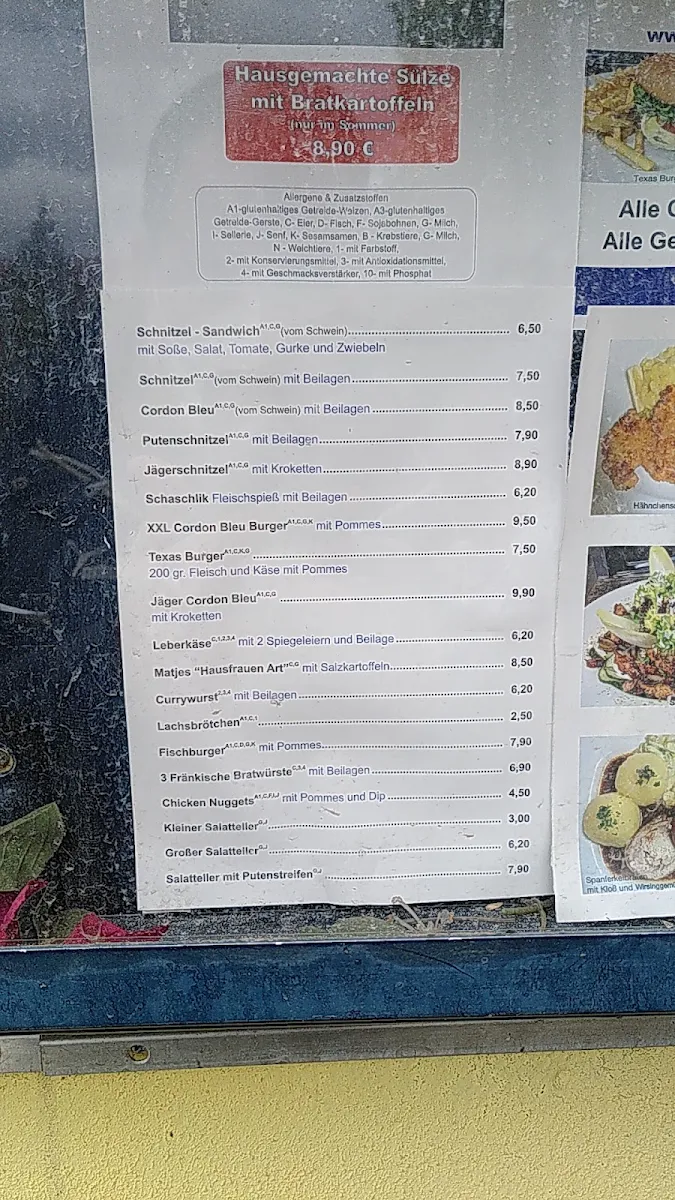 Hausgemachte Sülze
mit Bratkartoffeln
(nur im Sommer)
8,90 €
Allergene & Zusatzstoffen
A1-glutenhaltiges Getreide-Weizen, A3-glutenhaltiges
Getreide-Gerste, C- Eier, D- Fisch, F- Sojabohnen, G- Milch,
I- Sellerie, J- Senf, K- Sesamsamen, B - Krebstiere, G- Milch,
N - Weichtiere, 1- mit Farbstoff,
2- mit Konservierungsmittel, 3- mit Antioxidationsmittel,
4- mit Geschmacksverstärker, 10- mit Phosphat
Schnitzel - Sandwich A1,C,G (vom Schwein) 6,50
mit Soße, Salat, Tomate, Gurke und Zwiebeln
Schnitzel A1,C,G (vom Schwein) mit Beilagen 7,50
Cordon Bleu A1,C,G (vom Schwein) mit Beilagen 8,50
Putenschnitzel A1,C,G mit Beilagen 7,90
Jägerschnitzel A1,C,G mit Kroketten 8,90
Schaschlik Fleischspieß mit Beilagen 6,20
XXL Cordon Bleu Burger A1,C,G,K mit Pommes 9,50
Texas Burger A1,C,K,G 7,50
200 gr. Fleisch und Käse mit Pommes
Jäger Cordon Bleu A1,C,G 9,90
mit Kroketten
Leberkäse C,1,2,3,4 mit 2 Spiegeleiern und Beilage 6,20
Matjes “Hausfrauen Art” C,G mit Salzkartoffeln 8,50
Currywurst 2,3,4 mit Beilagen 6,20
Lachsbrötchen 2,50
Fischburger A1,C,D,G,K mit Pommes 7,90
3 Fränkische Bratwürste C,3,4 mit Beilagen 6,90
Chicken Nuggets mit Pommes und Dip 4,50
Kleiner Salatteller 3,00
Großer Salatteller 6,20
Salatteller mit Putenstreifen 7,90
ww
Texas Bur
Alle
Alle Ge
Hähnchens
mit Kloß und Wirsinggem